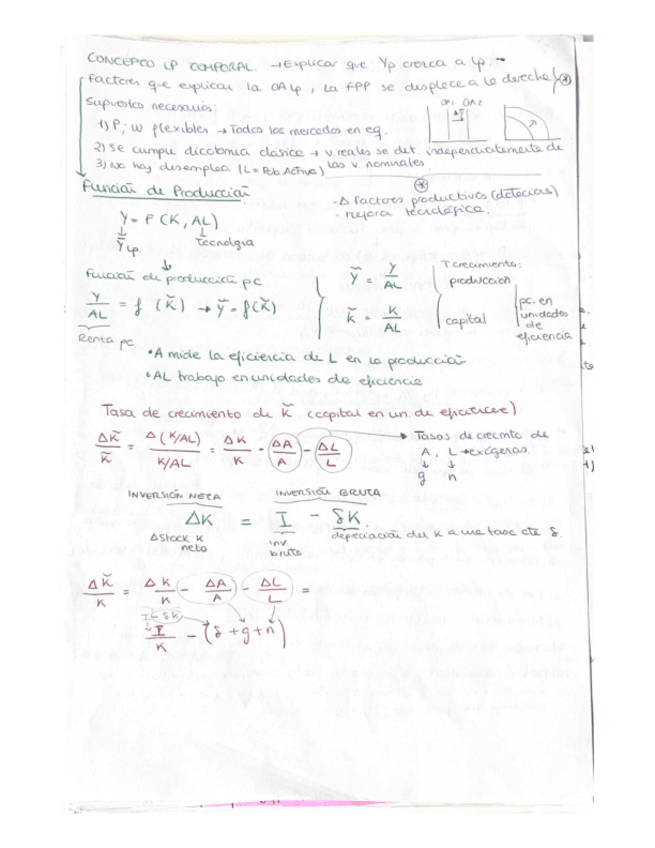 CONCEPTO LP TEMPORAL. → Explicar que Yp crezca a lp.
Factores que explican la OA lp, la FPP se desplace a la derecha ⊛
OA1 OA2
Supuestos necesarios:
1) P, w flexibles → Todos los mercados en eq.
2) Se cumple dicotomía clásica → v. reales se det. independientemente de las v. nominales.
3) No hay desempleo (L = Pob Activa)
⊛
Función de Producción
- Δ Factores productivos (dotación)
- mejora tecnológica.
Y = F (K, AL)
Ylp. tecnología
Función de producción pc
Y/AL = f (K̃) → Ỹ = f(K̃)
Renta pc
Ỹ = Y/AL
K̃ = K/AL
T crecimiento:
producción
capital
pc. en unidades de eficiencia
• A mide la eficiencia de L en la producción
• AL trabajo en unidades de eficiencia
Tasa de crecimiento de K̃ (capital en un. de eficiencia)
ΔK̃/K̃ = Δ(K/AL)/K/AL = ΔK/K - ΔA/A - ΔL/L
Tasas de crecmto de
A, L → exógenas.
g n
INVERSIÓN NETA INVERSIÓN BRUTA
ΔK = I - δK
Δ Stock K neto
inv. bruta
depreciación del K a una tasa cte δ.
ΔK̃/K = ΔK/K - ΔA/A - ΔL/L =
I - δK
I/K - (δ + g + n)